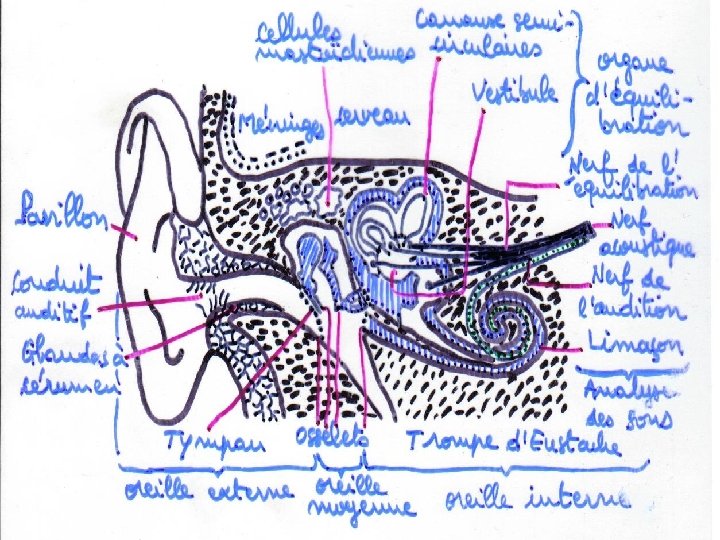 Cellules
mastoïdiennes
Canaux semi-
circulaires
organe
d'équili-
bration
Vestibule
Méninges
cerveau
Nerf de l'
équilibration
Nerf
acoustique
Nerf de
l'audition
Limaçon
Analyse
des sons
Pavillon
Conduit
auditif
Glandes à
cérumen
Tympan
Osselets
Trompe d'Eustache
oreille externe
oreille
moyenne
oreille interne